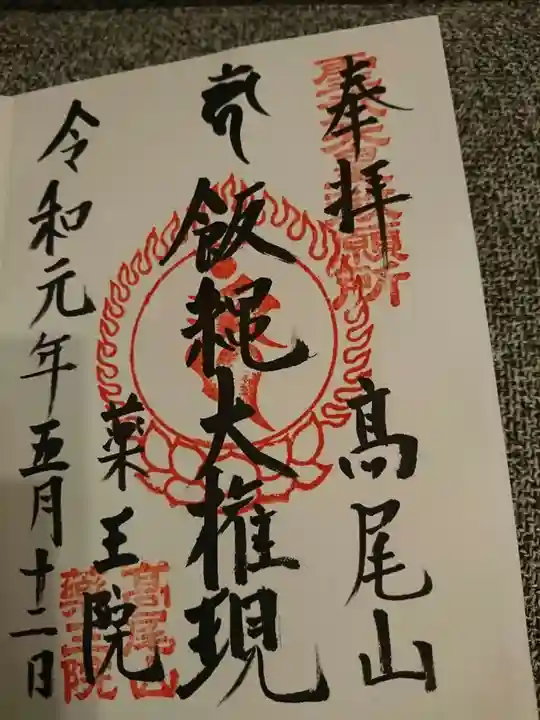 奉拝
高尾山
飯縄大権現
薬王院
令和元年五月十二日
高尾山
薬王院